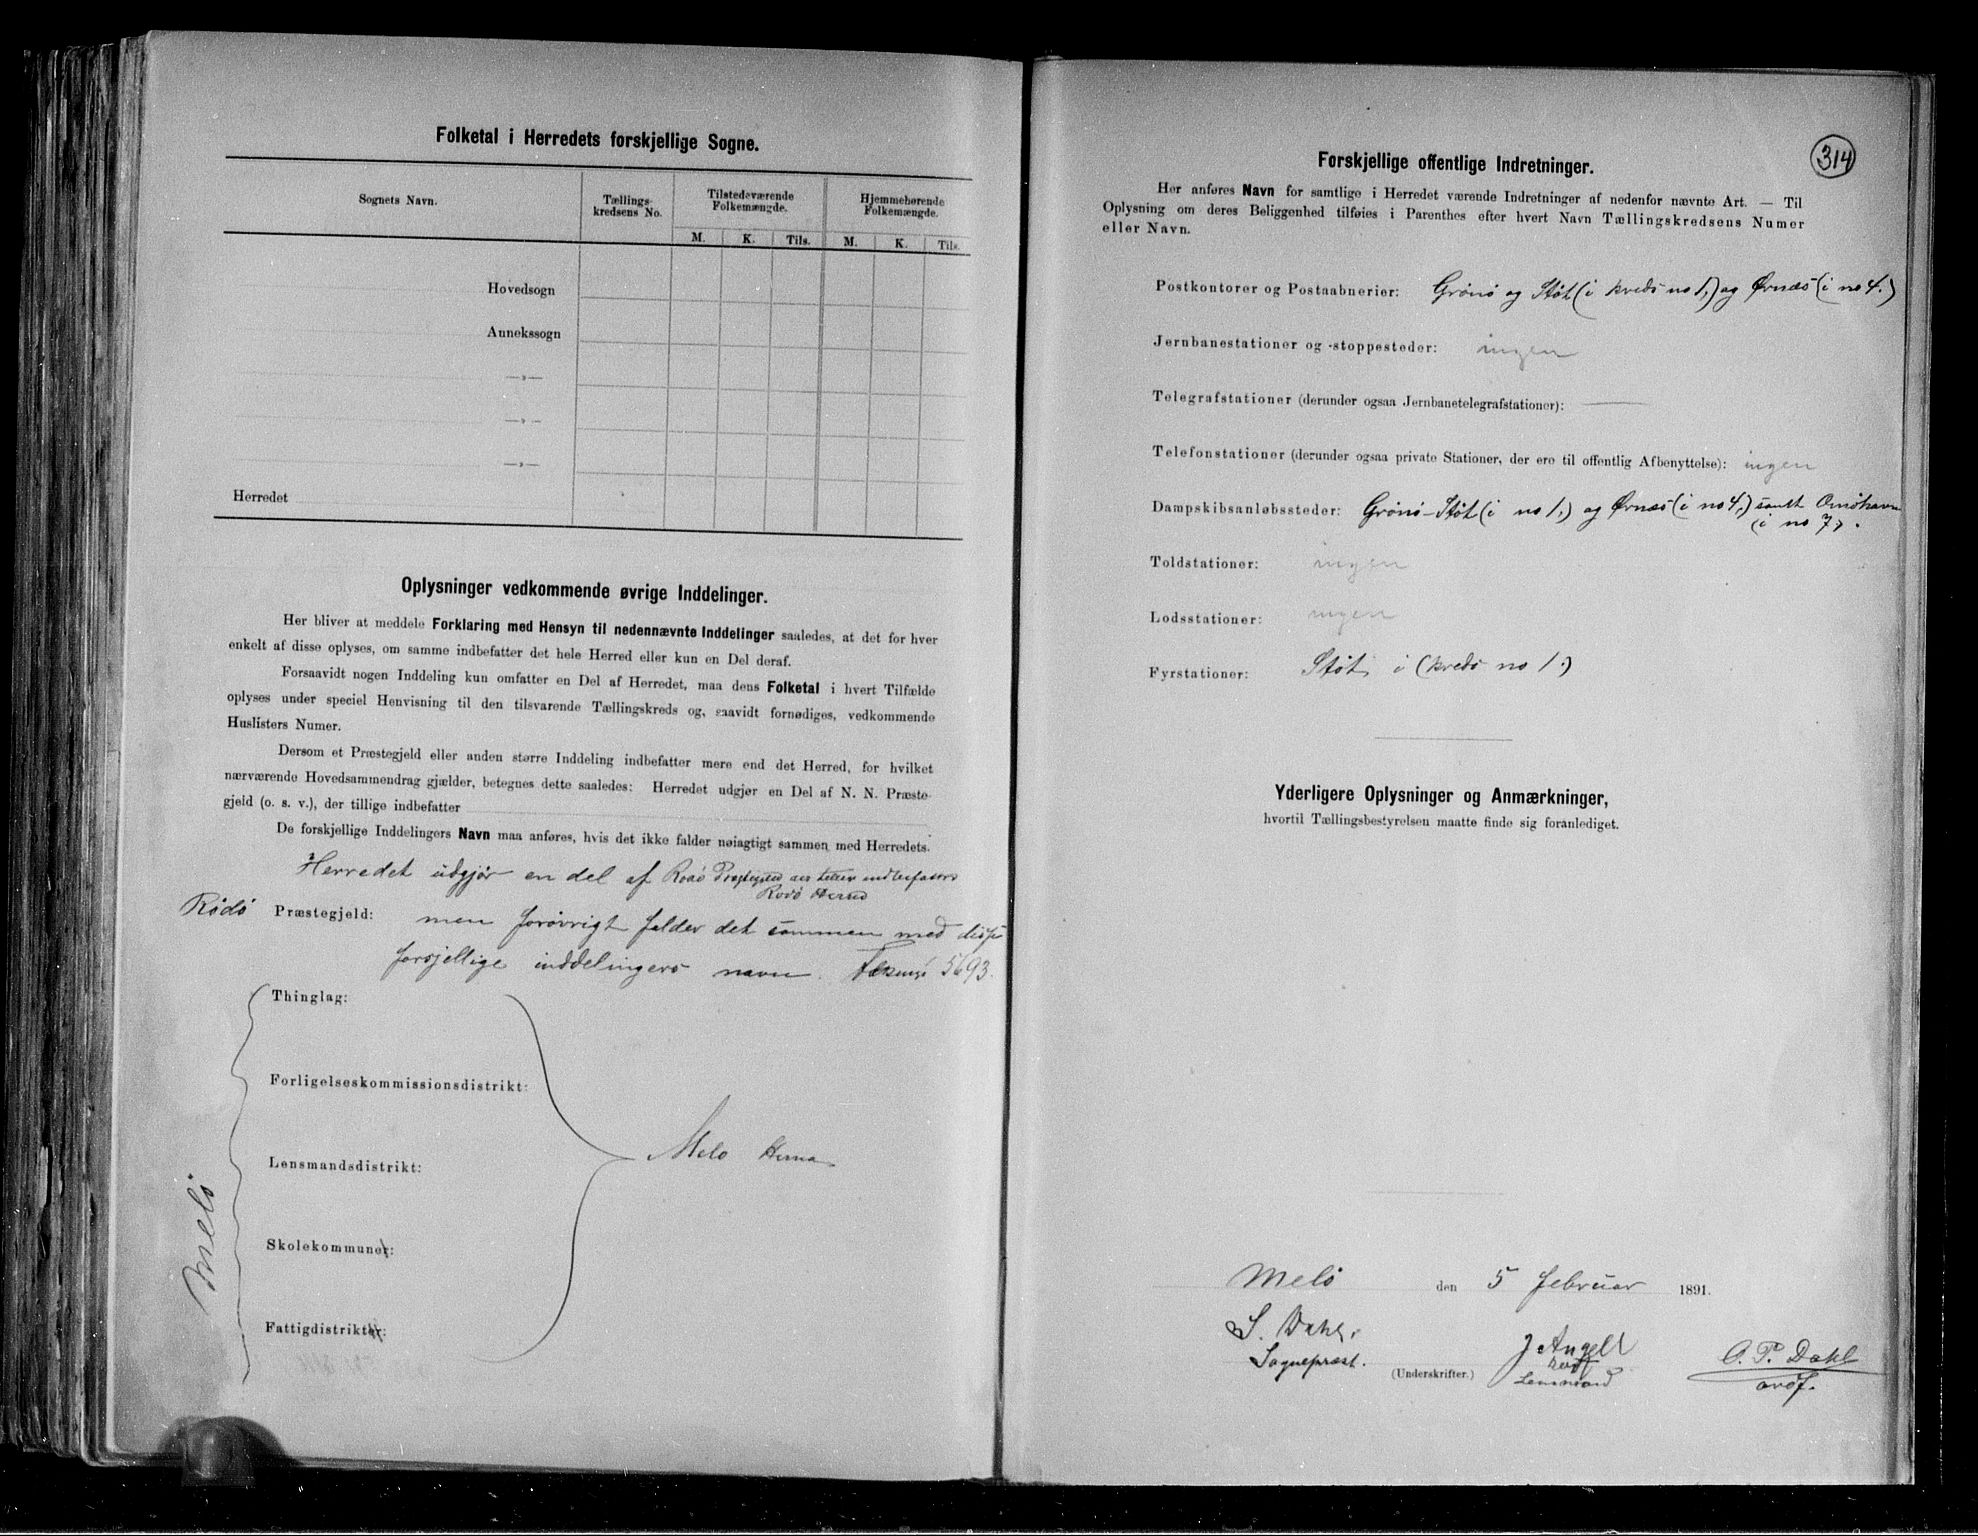 Folketal i Herredets forskjellige Sogne.
Sognets Navn.
Tællings-
kredsens No.
Tilstedeværende
Folkemængde.
Hjemmehørende
Folkemængde.
M. K. Tils. M. K. Tils.
Hovedsogn
Annekssogn
—»—
—»—
—»—
Herredet
Oplysninger vedkommende øvrige Inddelinger.
Her bliver at meddele Forklaring med Hensyn til nedennævnte Inddelinger saaledes, at det for hver
enkelt af disse oplyses, om samme indbefatter det hele Herred eller kun en Del deraf.
Forsaavidt nogen Inddeling kun omfatter en Del af Herredet, maa dens Folketal i hvert Tilfælde
oplyses under speciel Henvisning til den tilsvarende Tællingskreds og, saavidt fornødiges, vedkommende
Huslisters Numer.
Dersom et Præstegjeld eller anden større Inddeling indbefatter mere end det Herred, for hvilket
nærværende Hovedsammendrag gjælder, betegnes dette saaledes: Herredet udgjør en Del af N. N. Præste-
gjeld (o. s. v.), der tillige indbefatter
De forskjellige Inddelingers Navn maa anføres, hvis det ikke falder nøiagtigt sammen med Herredets.
Herredet udgjør en del af Rødø
Rødø Herred
Rödö Præstegjeld: men forøvrigt falder det sammen med
forsjellige inddelingers navn. 5693.
Thinglag:
Forligelseskommissionsdistrikt:
Melö
Lensmandsdistrikt:
Melø
Skolekommuner:
Fattigdistrikter:
314
Forskjellige offentlige Indretninger.
Her anføres Navn for samtlige i Herredet værende Indretninger af nedenfor nævnte Art. — Til
Oplysning om deres Beliggenhed tilføies i Parenthes efter hvert Navn Tællingskredsens Numer
eller Navn.
Postkontorer og Postaabnerier: Grönö og Støt (i kreds no 1,) og Ørnæs (i no 4.)
Jernbanestationer og -stoppesteder: ingen
Telegrafstationer (derunder ogsaa Jernbanetelegrafstationer): —
Telefonstationer (derunder ogsaa private Stationer, der ere til offentlig Afbenyttelse): ingen
Dampskibsanløbssteder: Grönö – Støt (i no 1,) og Ørnæs (i no 4,) samt Omøhavn
(i no 7).
Toldstationer: ingen
Lodsstationer: ingen
Fyrstationer: Støt i (kreds no 1.)
Yderligere Oplysninger og Anmærkninger,
hvortil Tællingsbestyrelsen maatte finde sig foranlediget.
Melö den 5 februar 1891.
S. Dahl. J Angell O. P. Dahl
Sognepræst. (Underskrifter.) Lensmand ordf.